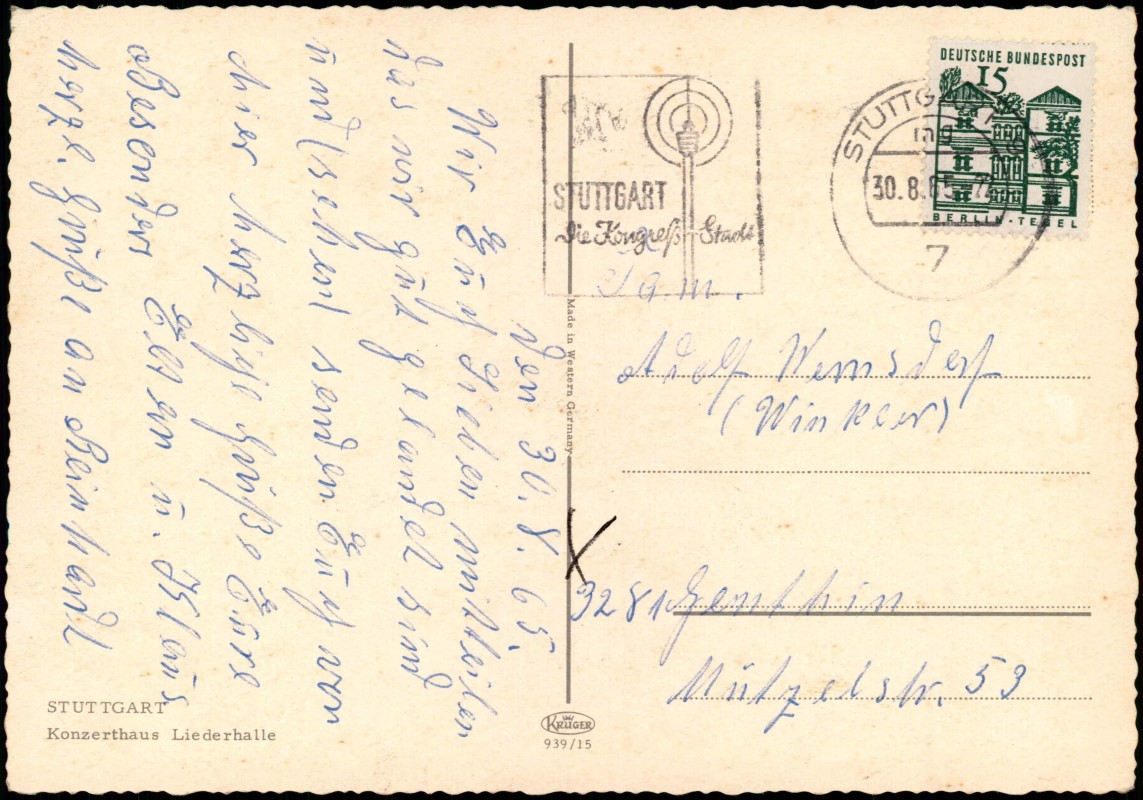 Den 30. 8. 65.
Wir Euch Lieben mitteilen
das wir gut gelandet sind
und senden Euch von
hier herzliche Grüße Eure
Eltern u. Klaus
Besonders
herzl. Grüße an Reinhard
STUTTGART
Konzerthaus Liederhalle
Made in Western Germany
KRÜGER
939/15
STUTTGART
Die Kongreß-Stadt
STUTTGART
30.8.65
7
DEUTSCHE BUNDESPOST
15
BERLIN-TEGEL
Fam.
Adolf Wernsdorf
(Winkler)
3281 Genthin
Mützelstr. 53